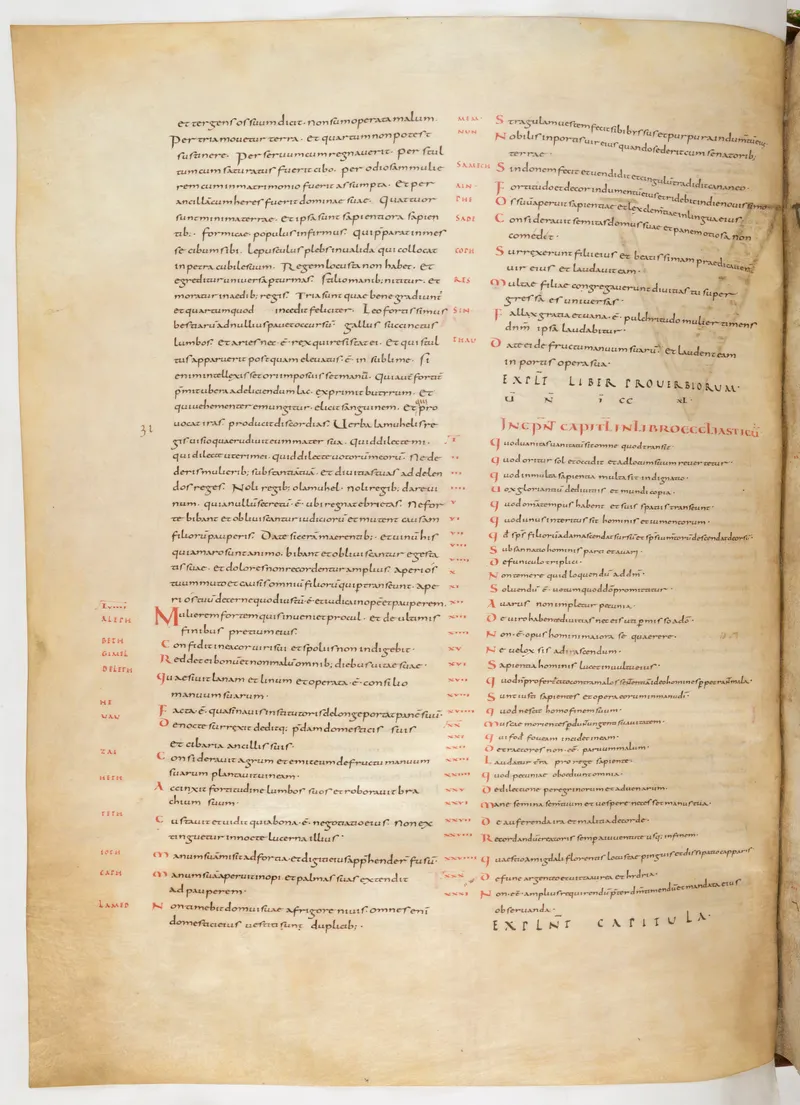 et tergens os suum dicit. non sum operata malum.
Per tria movetur terra. et quartum non potest
sustinere. Per servum cum regnaverit. per stul
tum cum saturatus fuerit cibo. per odiosam mulie
rem cum in matrimonio fuerit assumpta. Et per
ancillam cum heres fuerit dominae suae. Quattuor
sunt minima terrae. et ipsa sunt sapientiora sapien
tib; formicae populus infirmus. qui p̄parat in mes
se cibum sibi. Lepusculus plebs invalida qui collocat
in petra cubile suum. Regem locusta non habet. et
egreditur universa p turmas. stelio manib; nititur. et
moratur in aedib; regis. Tria sunt quae bene gradiunt̄
et quartum quod incedit feliciter. Leo fortissimus
bestiarū ad nullius pavebit occursū. gallus succinctus
lumbos. et aries nec .ē. rex qui resistat ei. Et qui stul
tus apparuit postquam elevatus .ē. in sublime. si
enim intellexisset ori imposuisset manū. Qui aut̄ fortit̄
p̄mit ubera ad eliciendum lac. exprimit butyrum. et
qui vehementer emungitur. elicit sanguinem. et qui pro
vocat iras. producit discordias. Verba lamuhelis re
31
gis visio qua erudivit eum mater sua. Quid dilecte mi.
quid dilecte uteri mei. quid dilecte votorū meorū. Ne de
deris mulierib; substantiā tuā. et divitias tuas ad delen
dos reges. Noli regib; o lamuhel. noli regib; dare vi
num. quia nullū secretū .ē. ubi regnat ebrietas. Ne for
te bibant et obliviscantur iudiciorū et mutent causam
filiorū pauperis. Date siceram maerentib; et vinū his
qui amaro sunt animo. bibant et obliviscantur egesta
tis suae. et doloris non recordentur amplius. Aperi os
tuum muto et causis omniū filiorū qui pertranseunt. Ape
ri os tuū decerne quod iustū .ē. et iudica inopē et pauperem.
ALEPH Mulierem fortem quis inveniet procul. et de ultimis
finibus pretium eius.
BETH Confidit in ea cor viri sui et spoliis non indigebit.
GIMEL Reddet ei bonū et non malū omnib; diebus vitae suae.
DELETH Quaesivit lanam et linum et operata .ē. consilio
manuum suarum.
HE Facta .ē. quasi navis institutoris de longe portat panē suū.
VAV De nocte surrexit deditq; p̄dam domesticis suis
et cibaria ancillis suis.
ZAI Consideravit agrum et emit eum de fructu manuum
suarum plantavit vineam.
HETH Accinxit fortitudine lumbos suos et roboravit bra
chium suum.
TETH Gustavit et vidit quia bona .ē. negotiatio eius. Non ex
tinguetur in nocte lucerna illius.
IOTH Manum suā misit ad fortia et digiti eius app̄hender̄ fusū.
CAPH Manum suā aperuit inopi et palmas suas extendit
ad pauperem.
LAMED Non timebit domui suae a frigore nivis. omnes eni
domestici eius vestiti sunt duplicib;
MEM Stragulam vestem fecit sibi byssus et purpura indumtū eius
NUN Nobilis in portis vir eius quando sederit cum senatorib;
terrae.
SAMECH Sindonem fecit et vendidit et cingulū tradidit cananeo.
AIN Fortitudo et decor indumentū eius et ridebit in die novissimo
PHE Os suū aperuit sapientiae et lex clementiae in lingua eius.
SADI Consideravit semitas domus suae et panem otiosa non
comedet.
COTH Surrexerunt filii eius et beatissimam praedicaver̄
vir eius et laudavit eam.
RES Multae filiae congregaverunt divitias tu super
gressa es universas.
SIN Fallax gratia et vana .ē. pulchritudo mulier timens
dn̄m ipsa laudabitur.
THAU Date ei de fructu manuum suarū. et laudent eam
in portis opera sua.
EXPLT LIBER PROVERBIORUM.
Ū N̄ Ī CC XL.
INCPNT CAPITL IN LIBRO ECCLIASTICŪ
I Quod vanitas vanitatū sit omne quod transit.
II Quod oritur sol et occidit et ad locum suum revertetur.
III Quod in multa sapientia multa sit indignatio.
IIII Vox gloriantiū de divitiis et mundi copia.
V Quod om̄a tempus habent et suis spatiis transeunt.
VI Quod unus interitus sit hominis et iumentorum.
VII Qd sp̄s filiorū adam ascendat sursū et sp̄s iumtorū descendat deorsū.
VIII Subsannatio hominis pare et avari.
VIIII De funiculo triplici.
X Non temere quid loquendū ad dm̄.
XI Solvendū .ē. votum quod dō promittatur.
XII Avarus non impletur pecunia.
XIII De viro habente divitias nec eis uti p̄missō a dō.
XIIII Non .ē. opus homini maiora se quaerere.
XV Ne velox sis ad irascendum.
XVI Sapientia hominis lucet in vultu eius.
XVIII Sunt iusti sapientes et opera eorum in manu di.
XVIIII Quod nesciat homo finem suum.
XX Muscae morientes p̄dun̄t unguenti suavitatem.
XXI Qui fodit foveam incidet in eam.
XXII De extractores non .ēē. parvum malum.
XXIII Laudatur terra pro rege sapiente.
XXIIII Quod pecuniae oboediunt omnia.
XXV De dilectione peregrinorum et advenarum.
XXVI Mane semina semen tuum et vespere ne cesset manus tua.
XXVII De auferenda ira et malitia de corde.
XXVIII Recordandū creatoris semp a iuventute usq; in finem.
XXVIIII Quae sit o amigdali florentis locustae pinguis et dissipatio capparis
XXX De fune argenteo et vitta aurea et hydria.
XXXI Non .ē. amplius requirendū p̄ter dm̄ timendū et mandata eius
observanda.
EXPLNT CAPITULA.